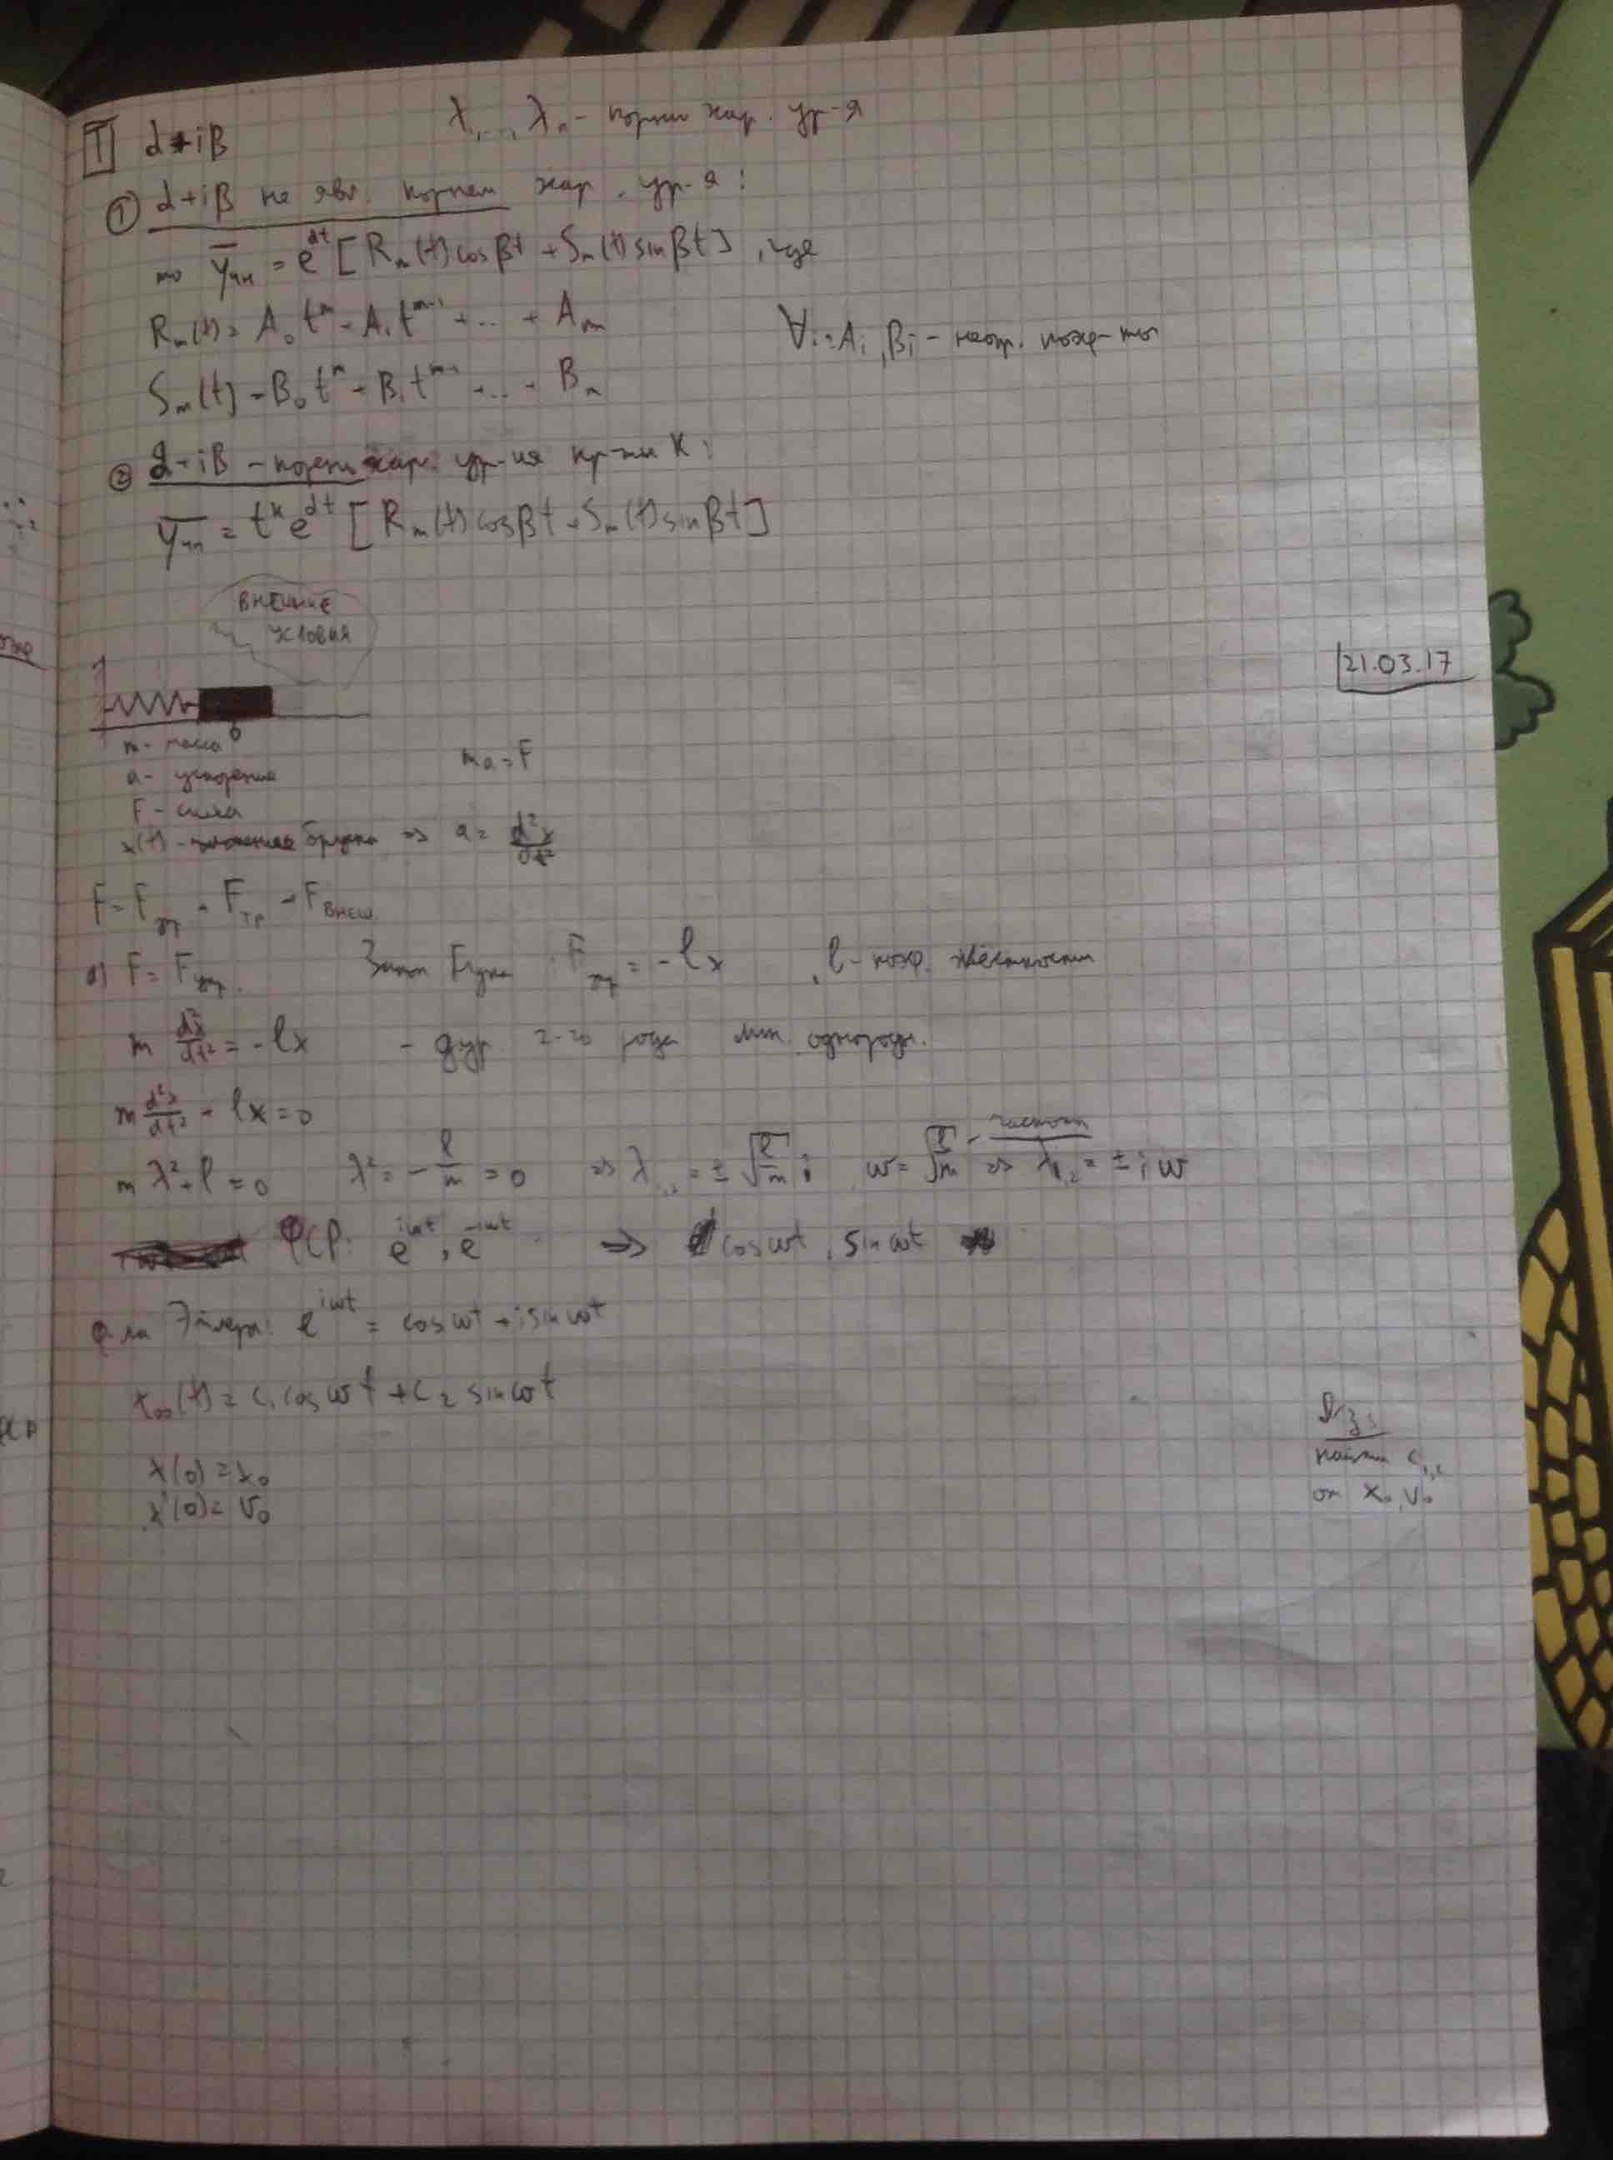 T α+iβ
λ₁,..., λₙ - корни хар. ур-я
① α+iβ не явл. корнем хар. ур-я:
то ȳчн = e^{αt} [Rₘ(t)cosβt + Sₘ(t)sinβt], где
Rₘ(t) = A₀t^m + A₁t^{m-1} + ... + Aₘ
∀i: Aᵢ, Bᵢ - неопр. коэф-ты
Sₘ(t) = B₀t^m + B₁t^{m-1} + ... + Bₘ
② α+iβ - корень хар. ур-ия кр-ти K:
ȳчн = t^k e^{αt} [Rₘ(t)cosβt + Sₘ(t)sinβt]
ВНЕШНИЕ
УСЛОВИЯ
21.03.17
0
m - масса
a - ускорение
ma = F
F - сила
x(t) - положение бруска => a = d²x/dt²
F = Fупр + Fтр + Fвнеш
а) F = Fупр. Закон Гука Fупр = -lx , l - коэф. жёсткости
m d²x/dt² = -lx - дур. 2-го рода лин. однородн.
m d²x/dt² + lx = 0
mλ² + l = 0 λ² = -l/m = 0 => λ₁,₂ = ±√(l/m) i , w = √(l/m) - частота => λ₁,₂ = ±iw
ФСР: e^{iwt}, e^{-iwt} => cos wt, sin wt
ф-ла Эйлера: e^{iwt} = cos wt + i sin wt
xоо(t) = c₁ cos wt + c₂ sin wt
x(0) = x₀
x'(0) = v₀
Д/з:
найти c₁,₂
от x₀, v₀